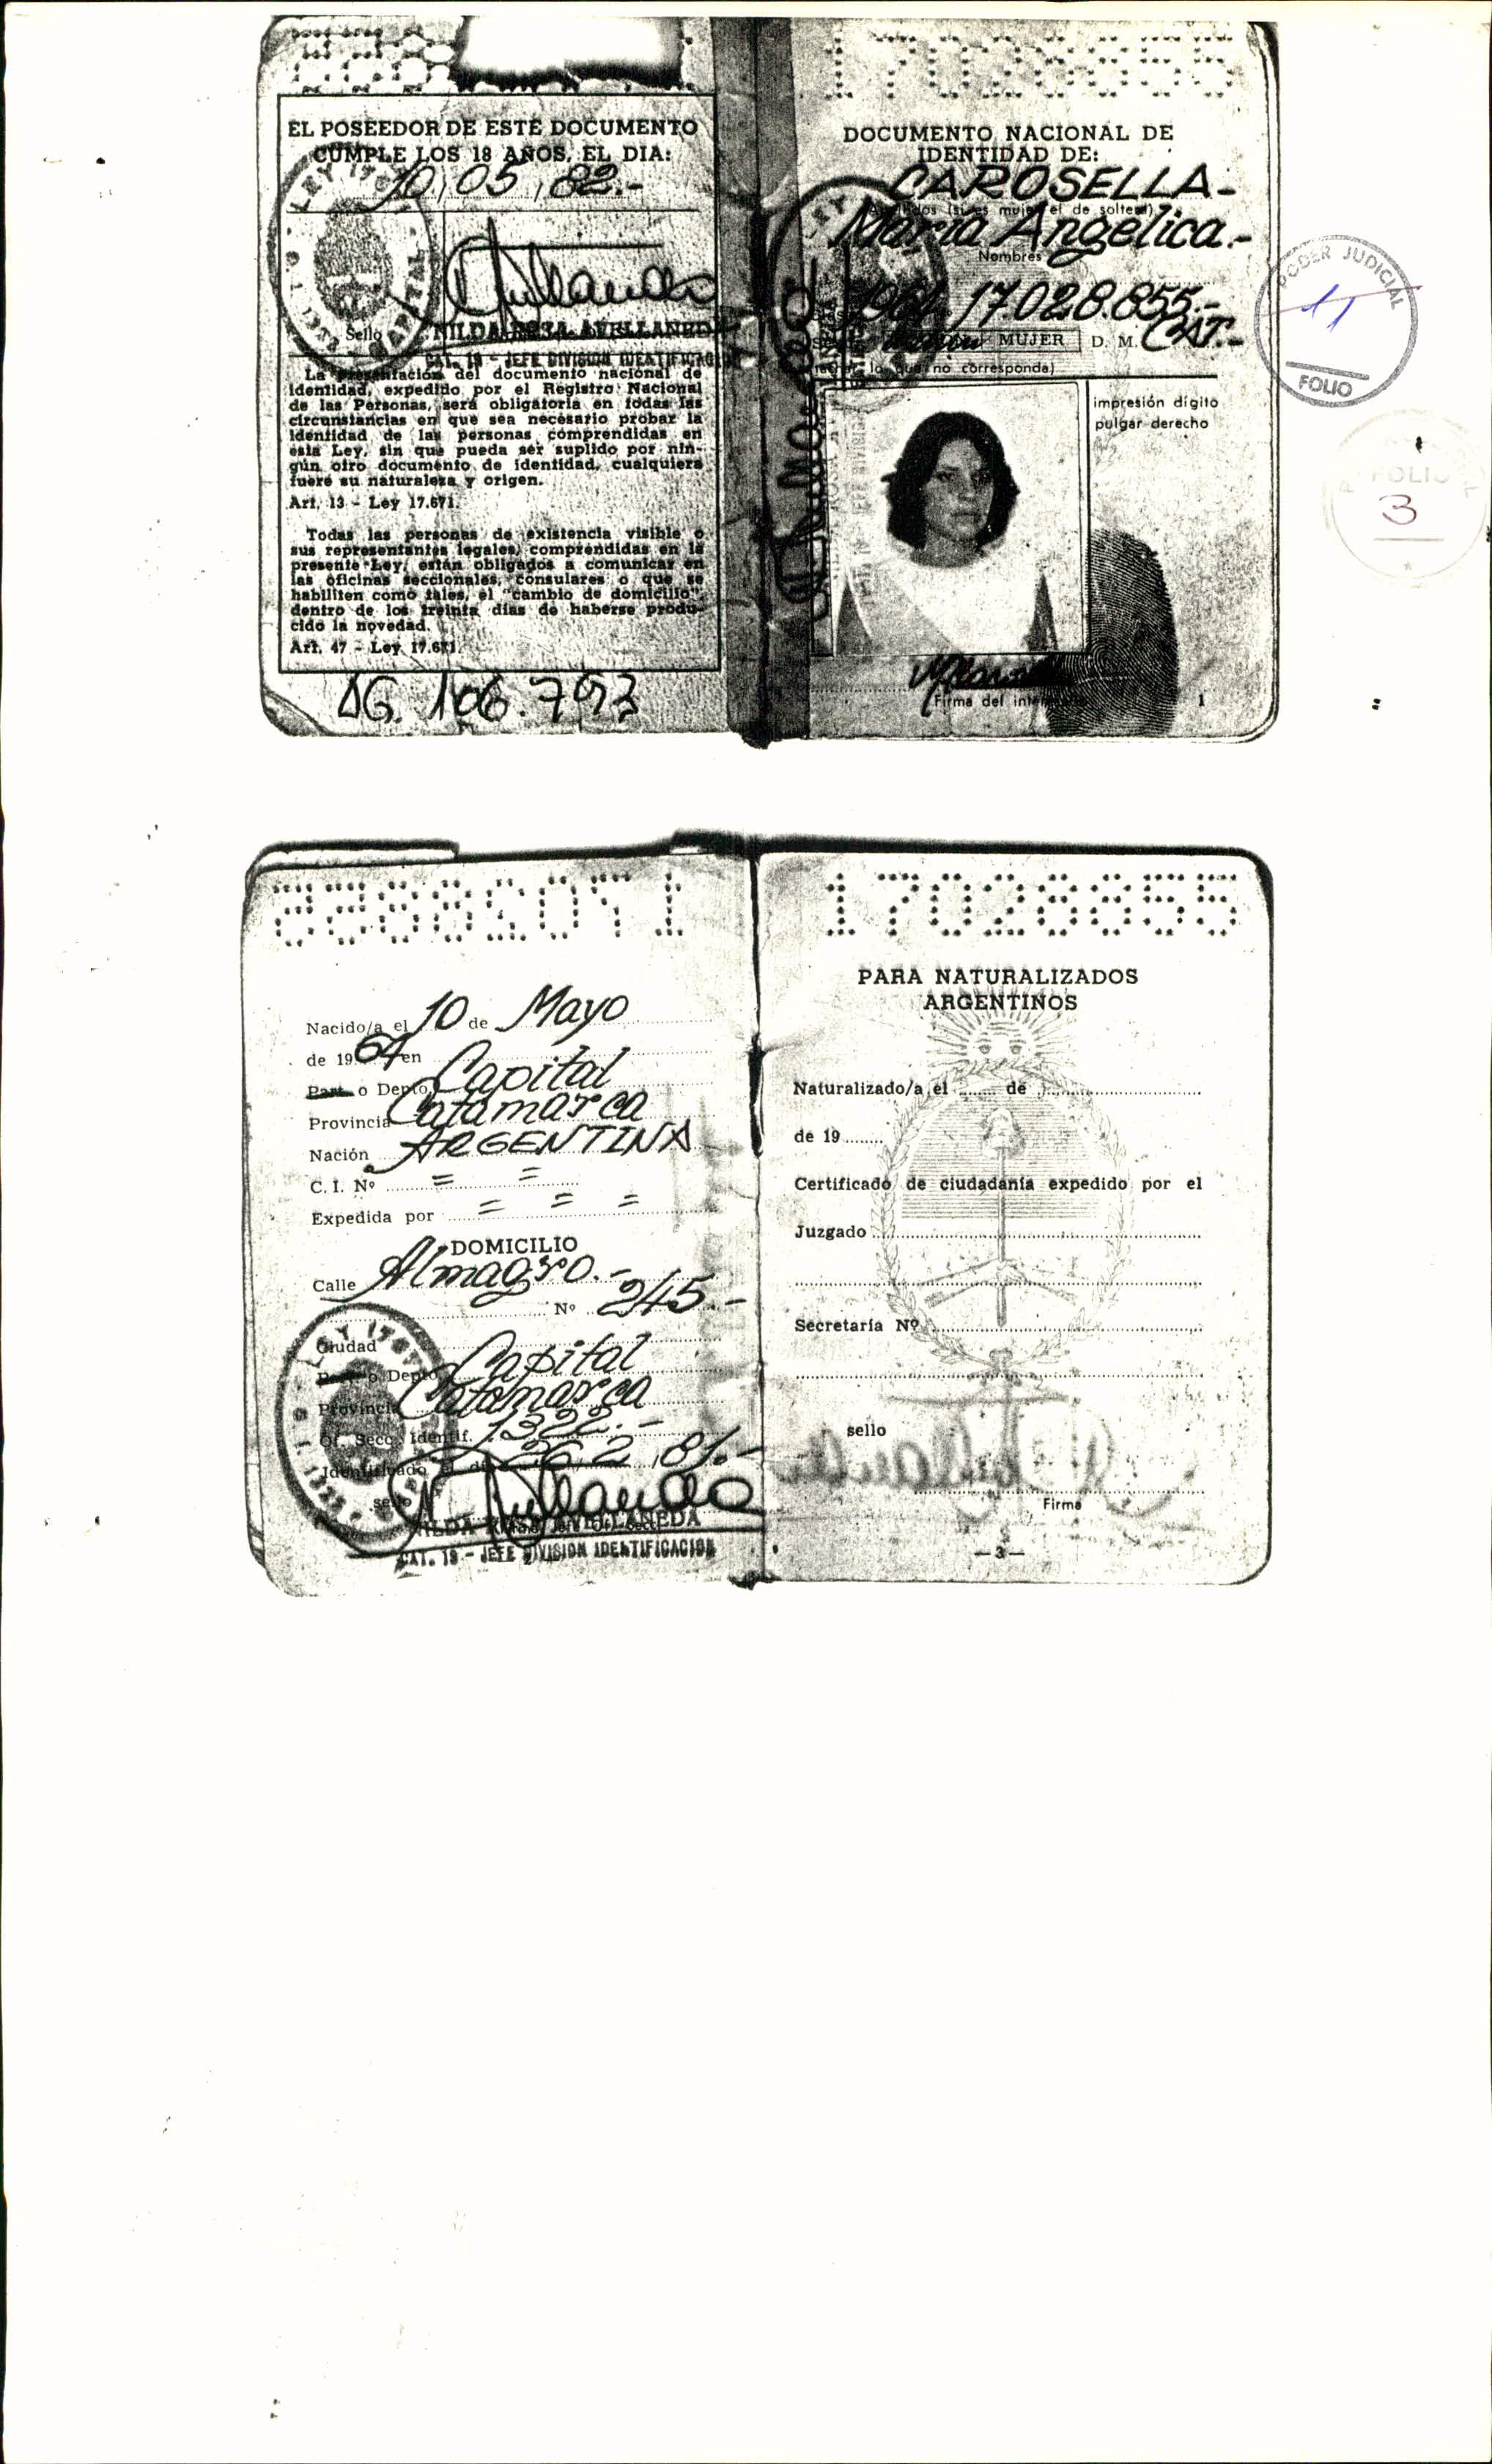 EL POSEEDOR DE ESTE DOCUMENTO
CUMPLE LOS 18 AÑOS, EL DIA:
10,05,82.-
Sello
NILDA ROSA AVELLANEDA
CAT. 19 - JEFE DIVISION IDENTIFICACION
La presentación del documento nacional de
identidad, expedido por el Registro Nacional
de las Personas, será obligatoria en todas las
circunstancias en que sea necesario probar la
identidad de las personas comprendidas en
esta Ley, sin que pueda ser suplido por nin-
gún otro documento de identidad, cualquiera
fuere su naturaleza y origen.
Art. 13 - Ley 17.671.
Todas las personas de existencia visible o
sus representantes legales, comprendidas en la
presente Ley, están obligados a comunicar en
las oficinas seccionales, consulares o que se
habiliten como tales, el "cambio de domicilio",
dentro de los treinta días de haberse produ-
cido la novedad.
Art. 47 - Ley 17.671.
DG. 106.793
17028855
DOCUMENTO NACIONAL DE
IDENTIDAD DE:
CAROSELLA-
Apellidos (si es mujer el de soltera)
María Angélica.-
Nombres
1964 17.028.855.-
MUJER D. M. CAT.-
(tachar lo que no corresponda)
impresión dígito
pulgar derecho
Firma del interesado
1
PODER JUDICIAL
11
FOLIO
FOLIO
3
17028855
Nacido/a el 10 de Mayo
de 1964 en
Part. o Depto. Capital
Provincia Catamarca
Nación ARGENTINA
C. I. Nº = =
Expedida por = = =
DOMICILIO
Calle Almagro.-
Nº 245-
Ciudad
Part. o Depto. Capital
Provincia Catamarca
Of. Secc. Identif. 1322.-
Identificado el día 26,2,81.-
sello
NILDA ROSA AVELLANEDA
CAT. 19 - JEFE DIVISION IDENTIFICACION
17028855
PARA NATURALIZADOS
ARGENTINOS
Naturalizado/a el ........ de ........
de 19........
Certificado de ciudadanía expedido por el
Juzgado
Secretaría Nº
sello
Firma
—3—